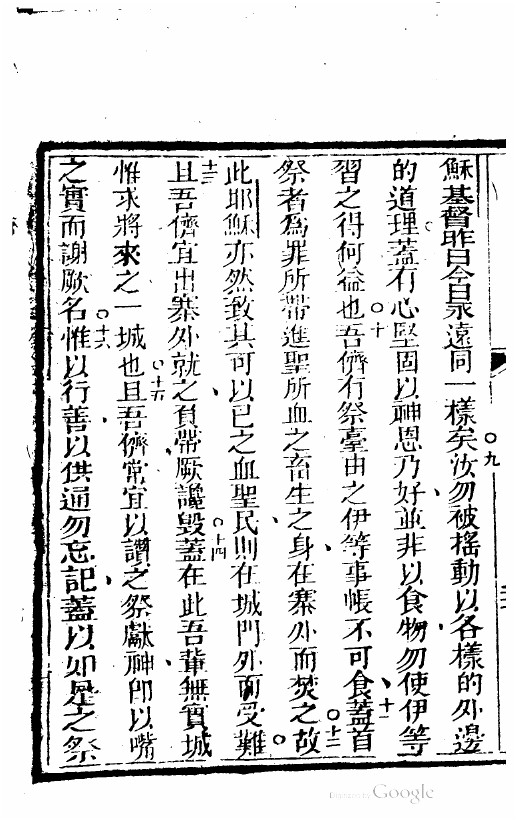 穌基督昨日今日永遠同一樣矣○九汝勿被搖動以各樣的外邊
的道理蓋有心堅固以神恩乃好並非以食物勿使伊等
習之得何益也○十吾儕有祭臺由之伊等事帳不可食○十一蓋首
祭者爲罪所帶進聖所血之畜生之身在寨外而焚之○十二故
此耶穌亦然致其可以己之血聖民則在城門外而受難○
十三且吾儕宜出寨外就之負帶厥讒毀○十四蓋在此吾輩無實城
惟求將來之一城也○十五且吾儕常宜以讚之祭獻神即以嘴
之實而謝厥名○十六惟以行善以供通勿忘記蓋以如是之祭
Digitized by Google